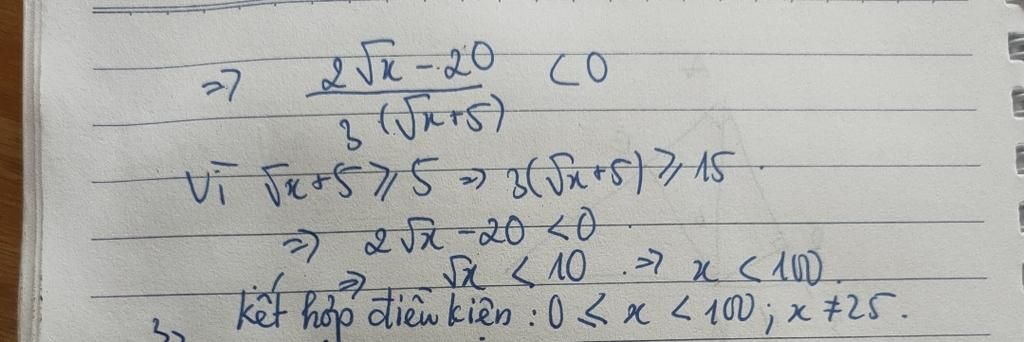 => (2√x - 20)/(3(√x+5)) < 0
Vì √x+5 ⩾ 5 => 3(√x+5) ⩾ 15.
=> 2√x - 20 < 0
=> √x < 10 => x < 100.
Kết hợp điều kiện : 0 ⩽ x < 100 ; x ≠ 25.